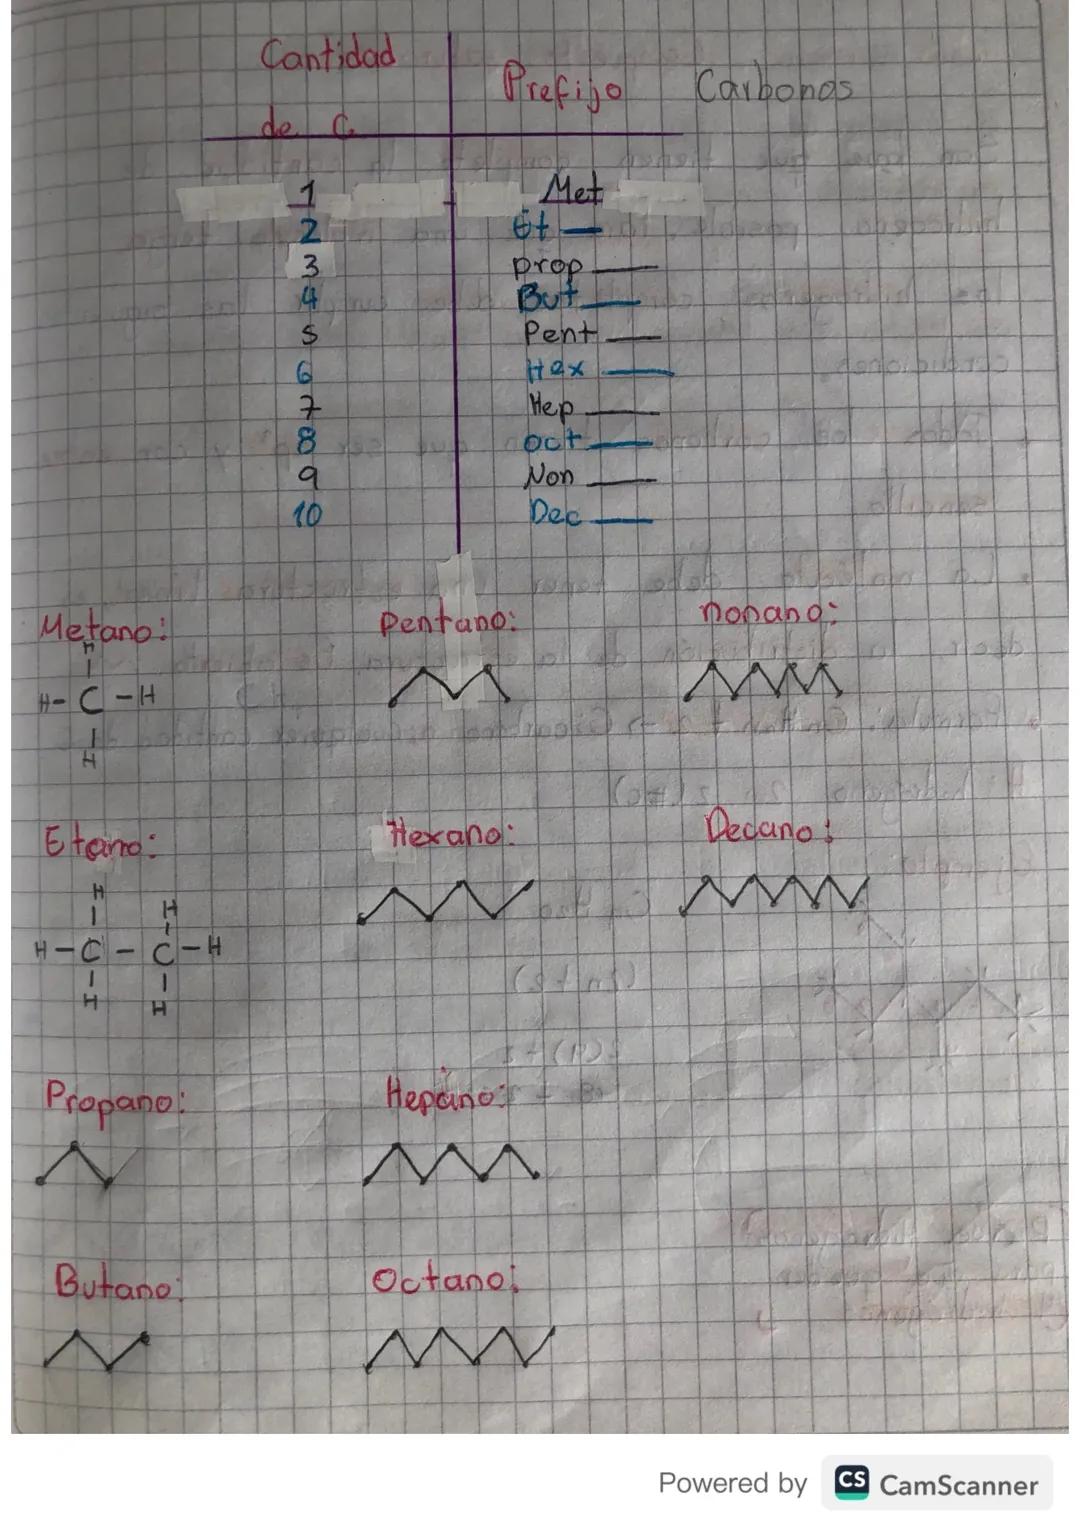 Cantidad
de C
Prefijo
Carbonos
1 Met
2 Et
3 prop
4 But
5 Pent
6 Hex
7 Hep
8 oct
9 Non
10 Dec
Metano: Pentano: nonano:
H
H-C-H
H
Etano: Hexano: Decano:
H H
H-C-C-H
H H
Propano: Hepano:
Butano: Octano:
Powered by CS CamScanner